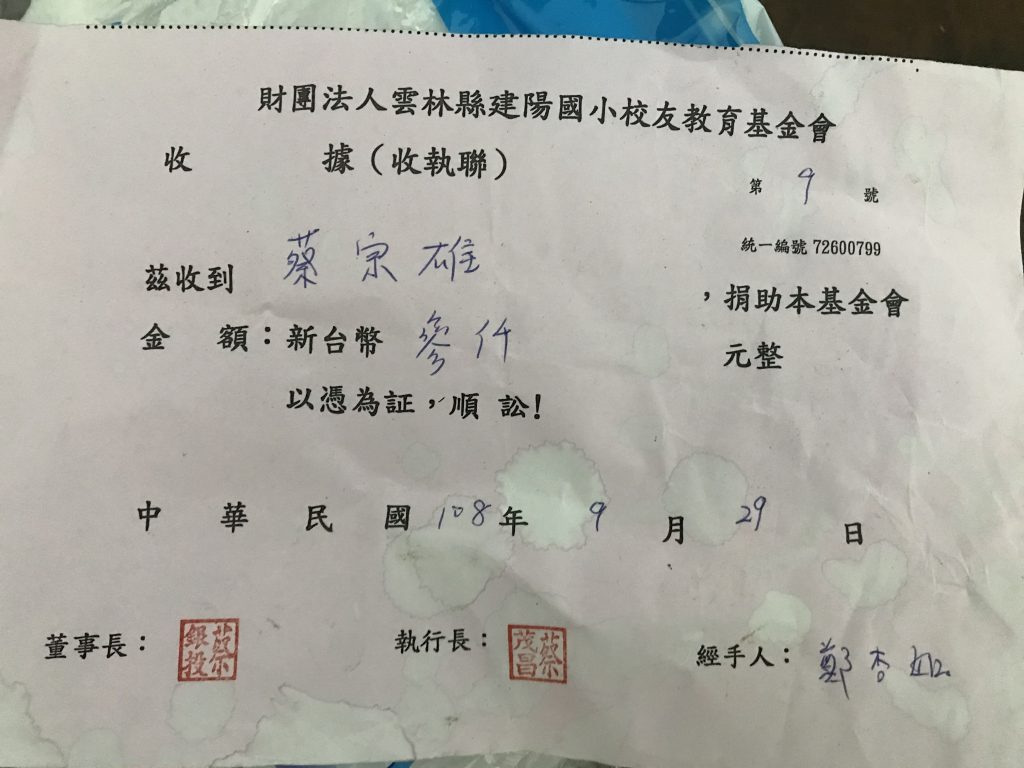 財團法人雲林縣建陽國小校友教育基金會
收 據(收執聯)
第 9 號
統一編號 72600799
茲收到 蔡宗雄 ，捐助本基金會
金 額：新台幣 參仟 元整
以憑為証，順 訟!
中 華 民 國 108 年 9 月 29 日
董事長： 蔡銀投 執行長： 蔡茂昌 經手人： 鄭杏